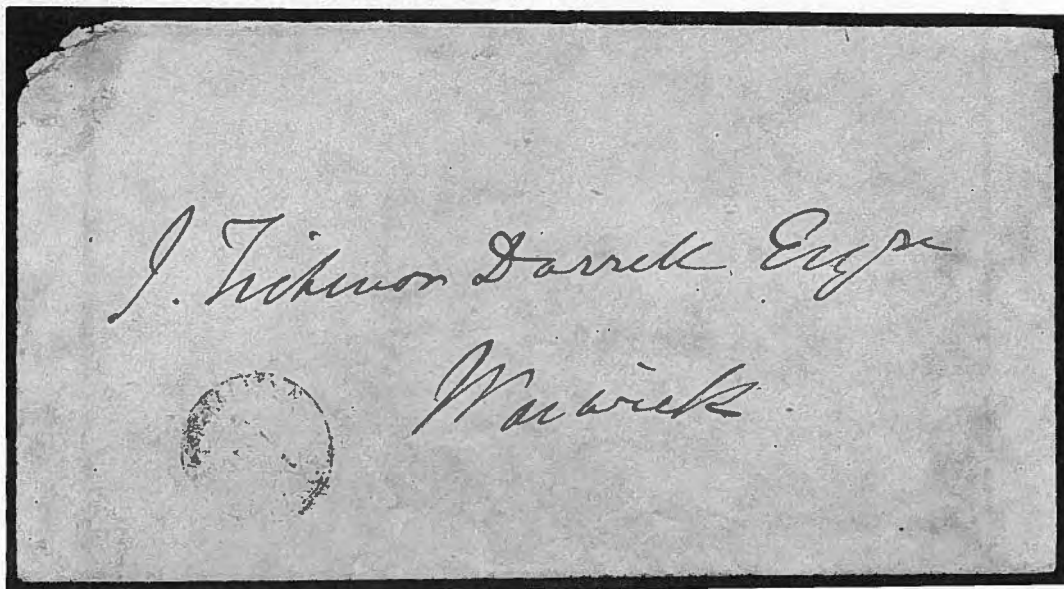 J. Tickenor Darrell Esqre
Warwick